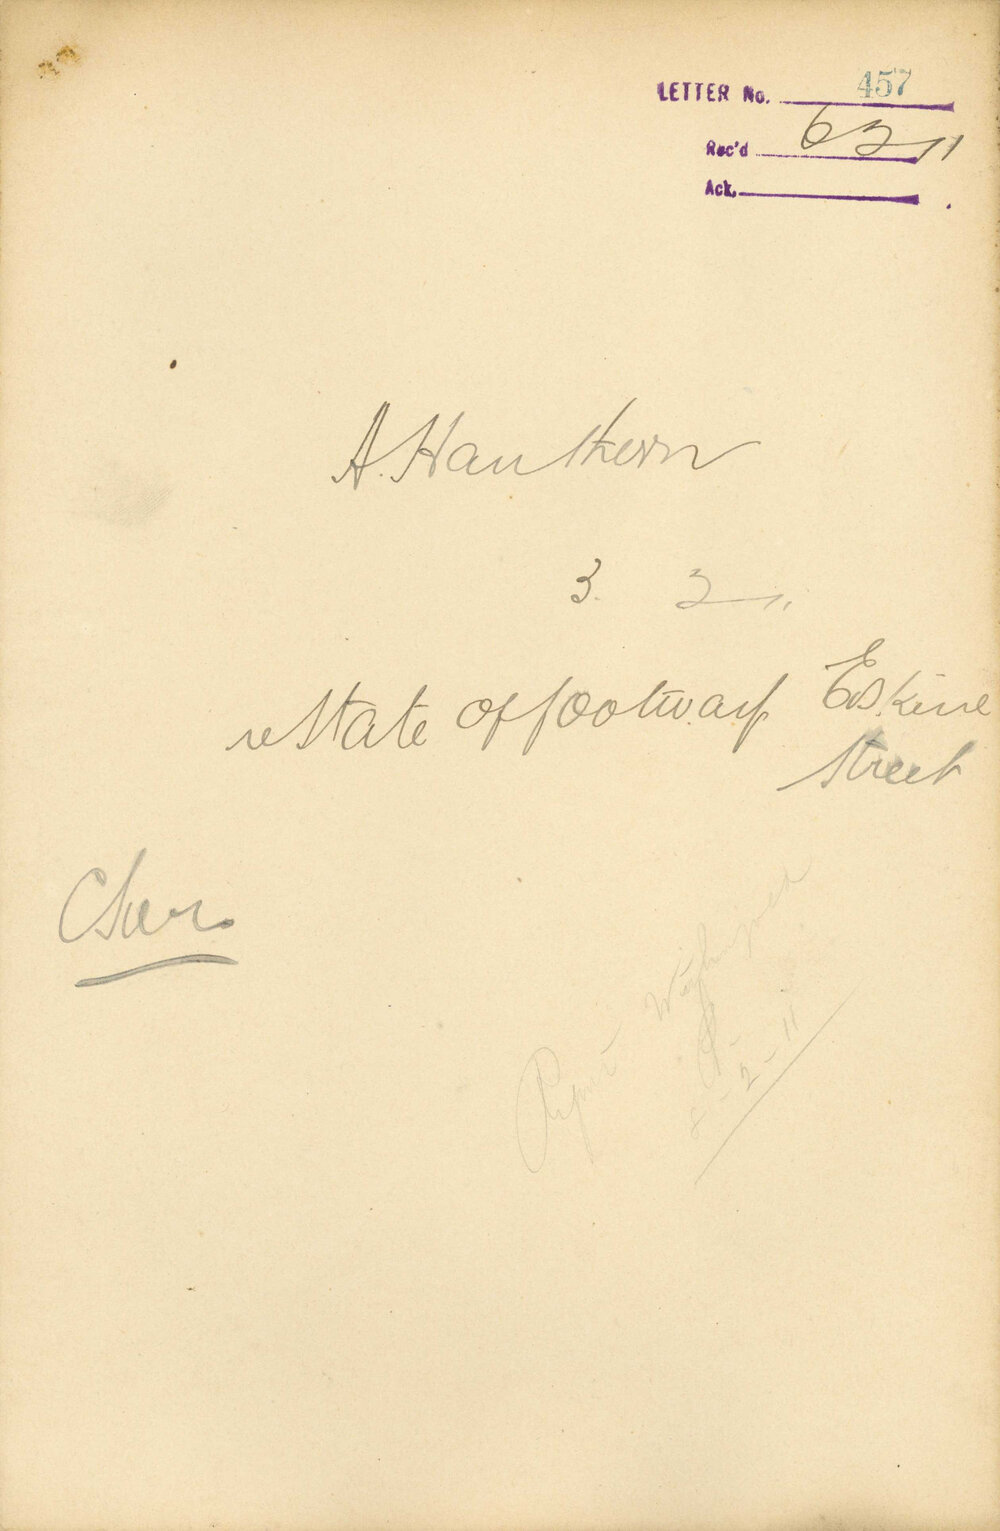 LETTER No. 457
Rec'd 6 2 11
Ack.
A. Hawthorn
3. 2 11.
re State of footway Erskine
Street
8-2-11